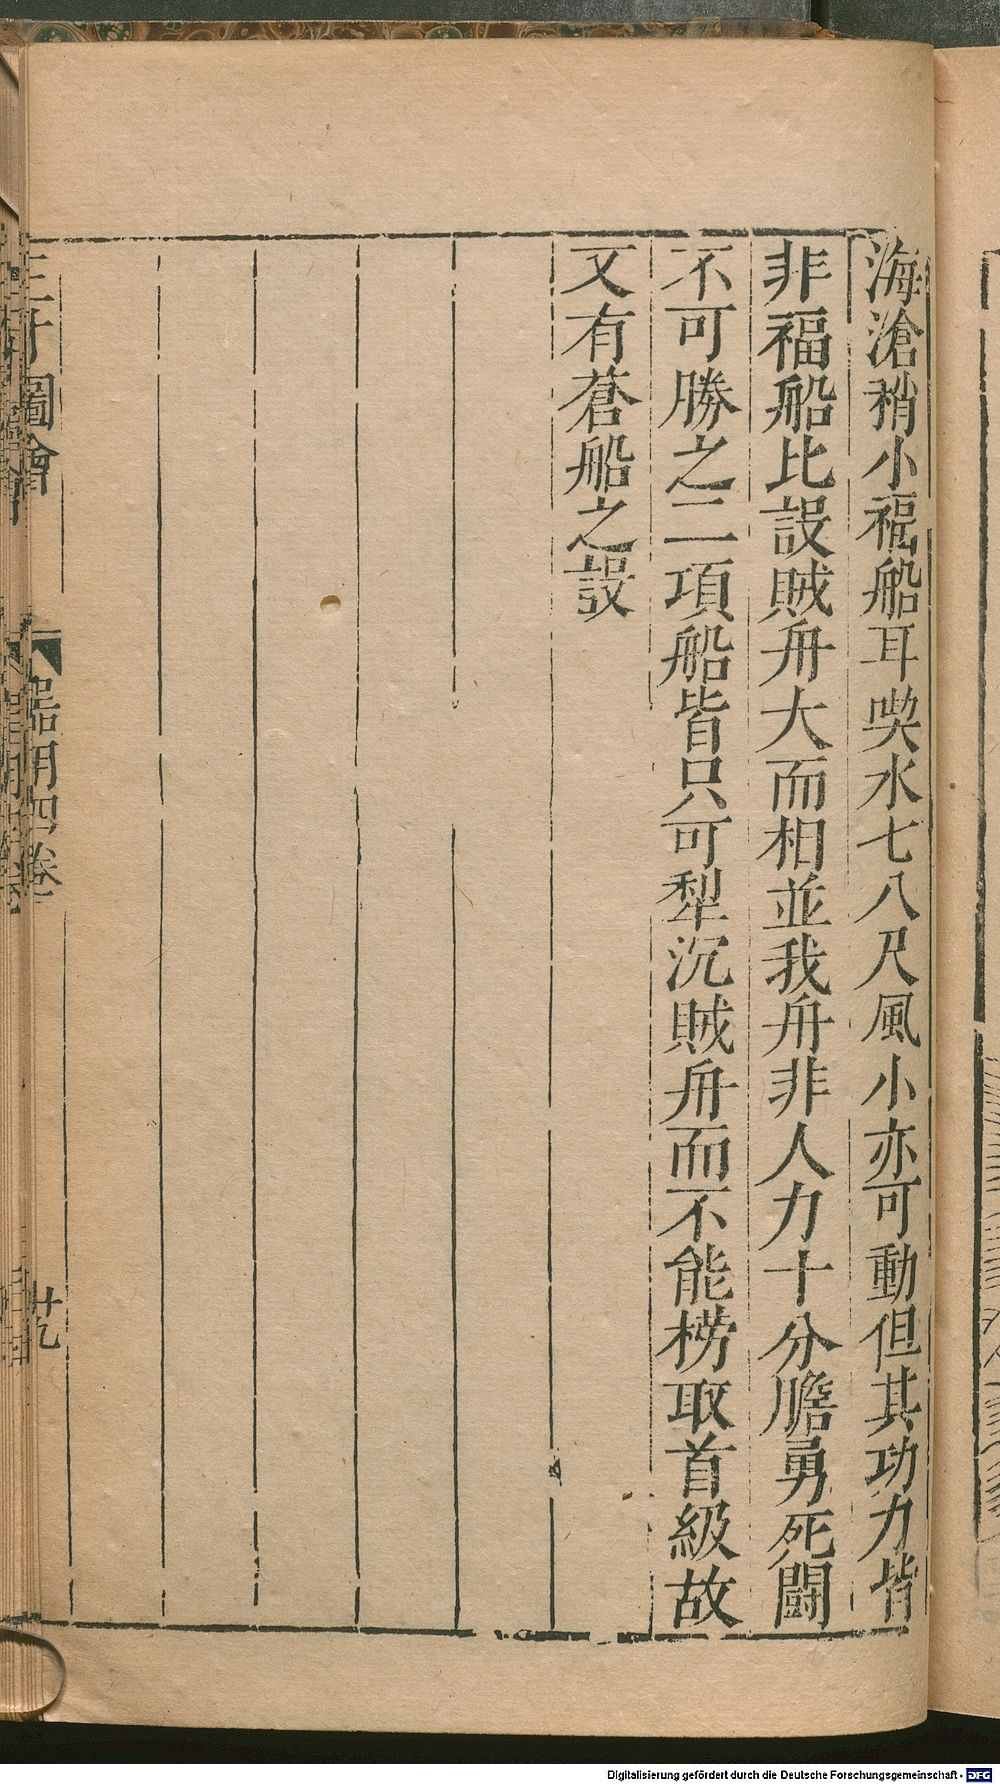 海滄稍小福船耳喫水七八尺風小亦可動但其功力皆
非福船比設賊舟大而相並我舟非人力十分膽勇死鬪
不可勝之二項船皆只可犁沉賊舟而不能撈取首級故
又有蒼船之設
三才圖會
器用四卷
Digitalisierung gefördert durch die Deutsche Forschungsgemeinschaft - DFG